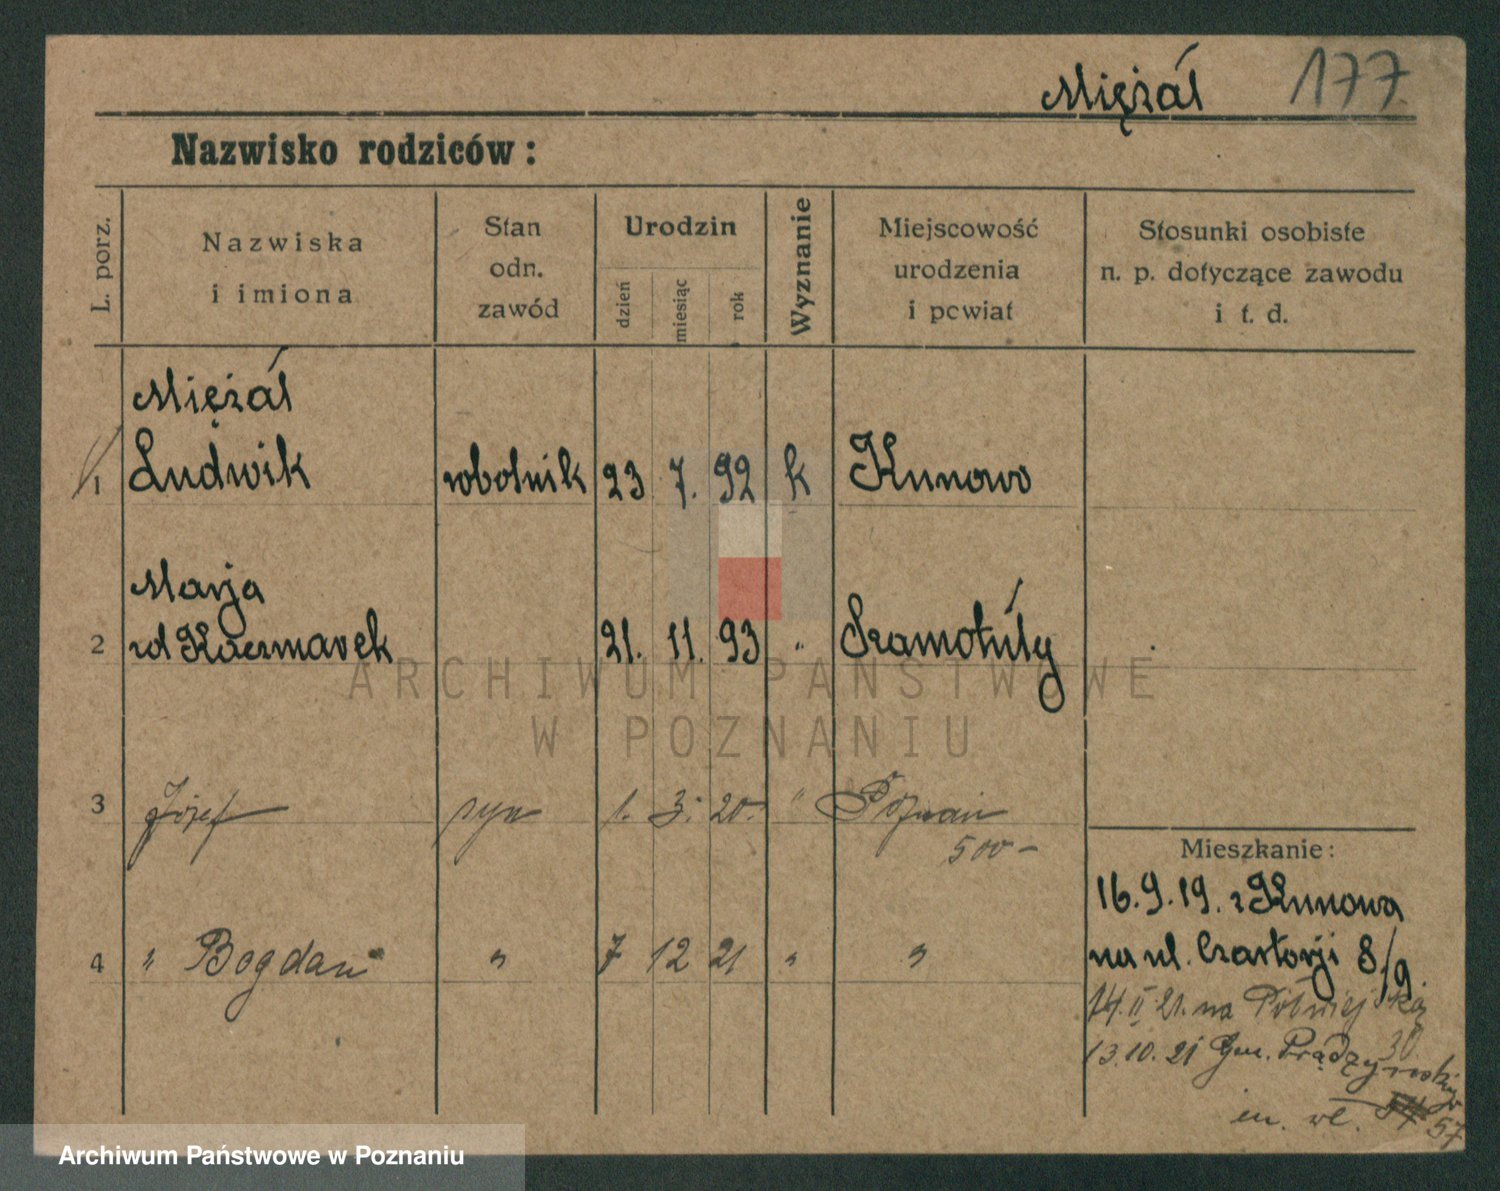 Mięžał 177
Nazwisko rodziców:
L. porz.
Nazwiska
i imiona
Stan
odn.
zawód
Urodzin
dzień
miesiąc
rok
Wyznanie
Miejscowość
urodzenia
i powiat
Stosunki osobiste
n. p. dotyczące zawodu
i t. d.
Miężał
1 Ludwik robotnik 23 7. 92 k Kunowo
Marja
2 rd Kaczmarek 21. 11. 93 " Szamotuły
3 Józef syn 1. 3. 20. " Poznań
500 –
4 " Bogdan " 7 12 21 " "
Mieszkanie:
16.9.19. z Kunowa
na ul. Czartorji 8/9
14.II 21. na Półwiejską
30
13.10.21 Gen. Prądzyńskiego
57
ARCHIWUM PAŃSTWOWE
W POZNANIU
Archiwum Państwowe w Poznaniu